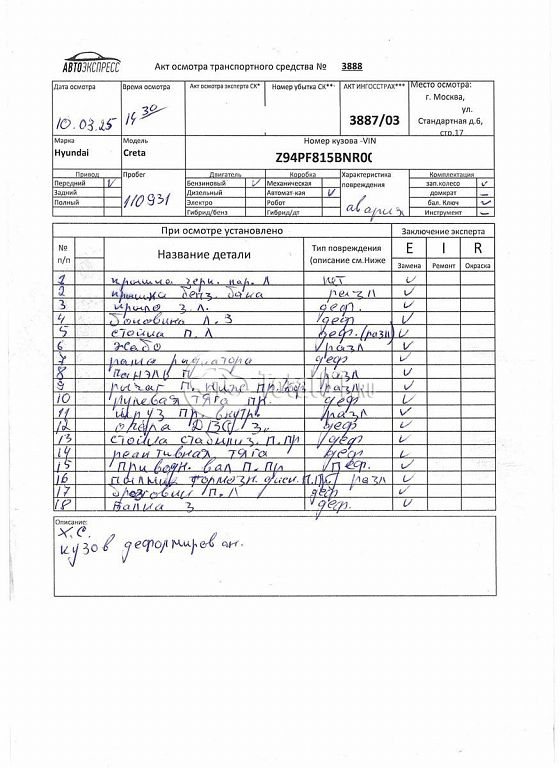 АВТОЭКСПРЕСС
Акт осмотра транспортного средства № 3888
Дата осмотра Время осмотра Акт осмотра эксперта СК* Номер убытка СК** АКТ ИНГОССТРАХ*** Место осмотра:
10.03.25 14 30 3887/03 г. Москва,
ул.
Стандартная д.6,
стр.17
Марка Модель Номер кузова -VIN
Hyundai Creta Z94PF815BNR0
Привод Пробег Двигатель Коробка Характеристика повреждения Комплектация
Передний 110931 Бензиновый Механическая авария зап.колесо
Задний Дизельный Автомат-кая домкрат
Полный Электро Робот бал. Ключ
Гибрид/бенз Гибрид/дт Инструмент
При осмотре установлено Заключение эксперта
№ п/п Название детали Тип повреждения (описание см.Ниже E I R
Замена Ремонт Окраска
1 крышка зерк. нар. Л нет
2 крышка бенз. бака разл
3 крыло З.Л. деф.
4 боковина Л.З деф
5 стойка П.Л деф.(разл)
6 жабо разл
7 рамка радиатора деф
8 панэль П разл
9 рычаг П. нижн пр. разл
10 рулевая тяга пр. деф
11 шруз пр. внутр. разл
12 опора ДВС З. деф
13 стойка стабилиз. П.пр деф
14 реактивная тяга деф
15 приводн. вал П.Пр деф.
16 пыльник тормозн. диск. П.пр разл
17 П.Л деф
18 балка З деф.
Описание:
Х.С.
кузов деформирован.